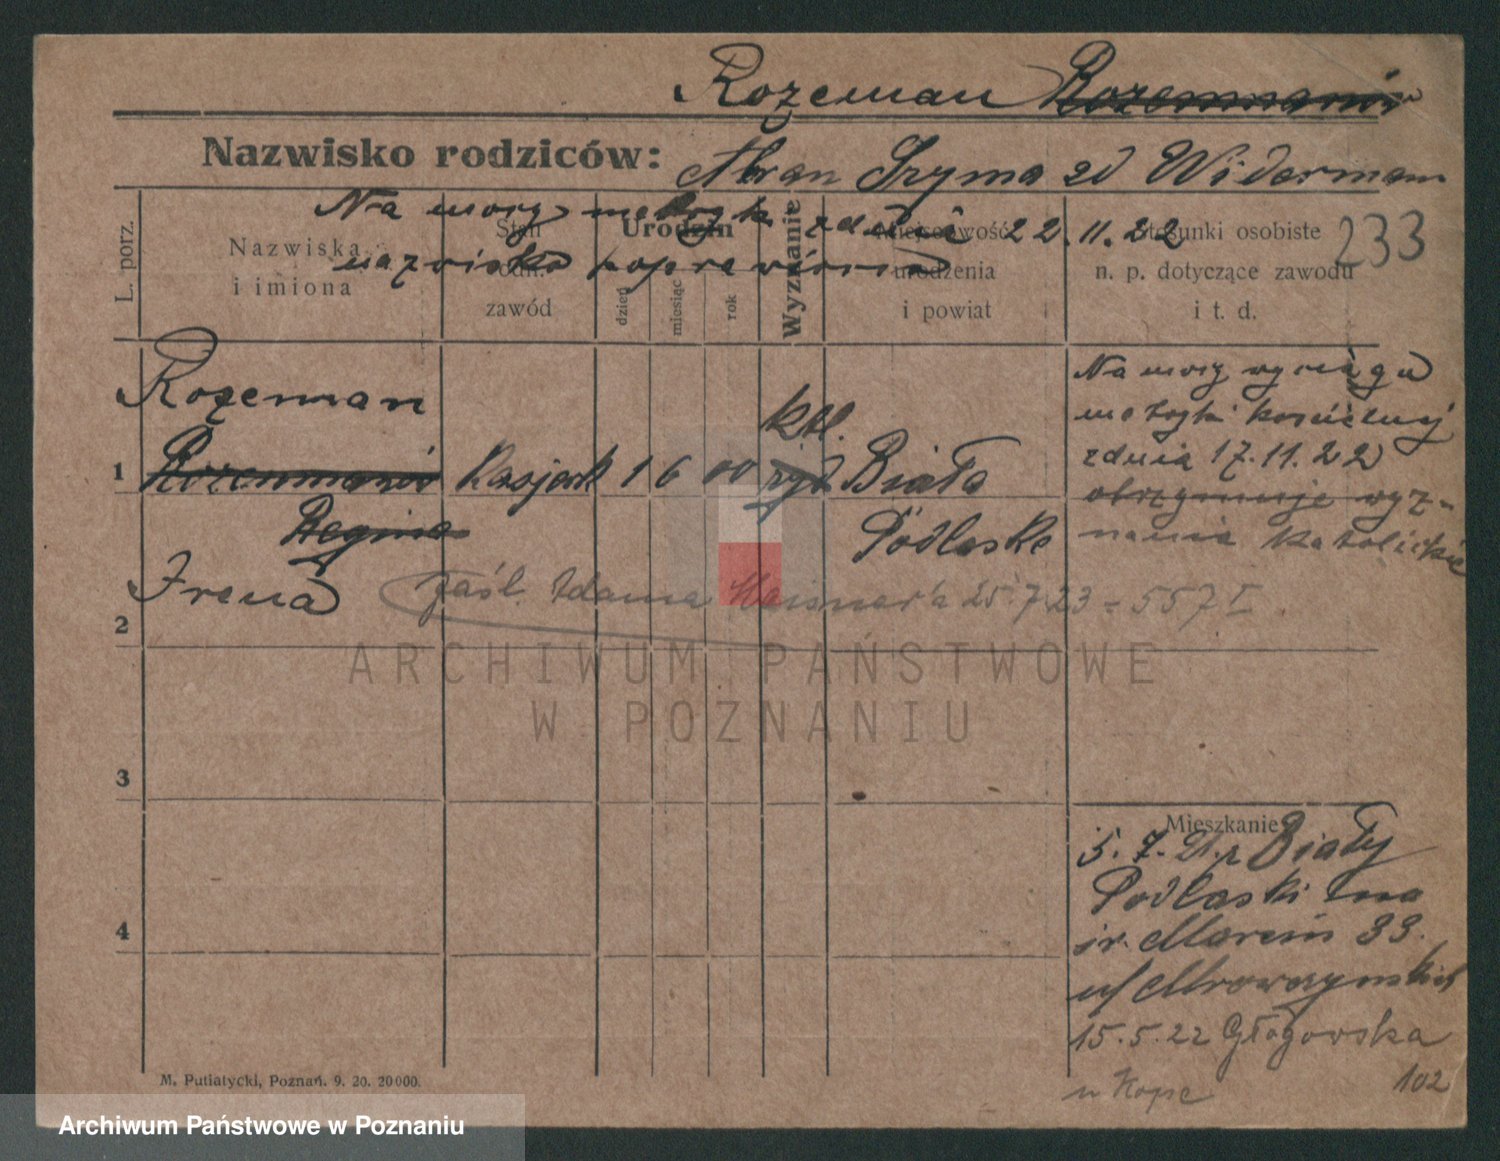 Rożeman Rozenmanów
Nazwisko rodziców: Abran Szyma zd Widerman
Na mocy metryk zdnia 22.11.22
nazwisko poprawiono
233
L. porz.
Nazwiska
i imiona
Stan
odn.
zawód
Urodzin
dzień
miesiąc
rok
Wyznanie
Miejscowość
urodzenia
i powiat
Stosunki osobiste
n. p. dotyczące zawodu
i t. d.
Rożeman
1 Rozenmanów Kasjerk 1 6 00 ktl. żyd Biała
Podlaska
Regina
Irena
2
zaśl. Adama Meisner'a 25.7.23 = 557 I
Na mocy wyciągu
metryki kościelnej
zdnia 17.11.22
otrzymuje wyz-
nania katolickie
ARCHIWUM PAŃSTWOWE
W POZNANIU
3
4
Mieszkanie
5.7.21. z Biały
Podlaski na
św. Marcin 33.
u/ Mrowczynskich
15.5.22 Głogowska
102
u Kopc
M. Putiatycki, Poznań. 9. 20. 20000.
Archiwum Państwowe w Poznaniu